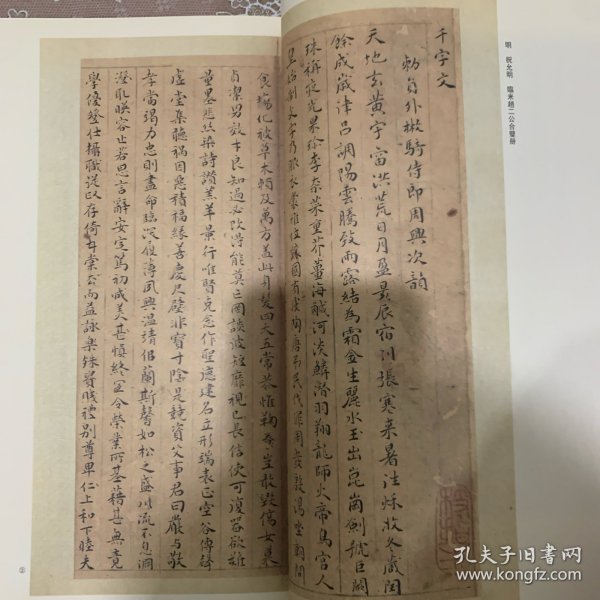 明 祝允明 臨米趙二公合璧册
千字文
勑員外散騎侍郎周興次韻
天地玄黃宇宙洪荒日月盈昃辰宿列張寒来暑往秋收冬藏閏
餘成歲律吕調陽雲騰致雨露結為霜金生麗水玉出崑崗劍號巨闕
珠稱夜光果珍李柰菜重芥薑海鹹河淡鱗潛羽翔龍師火帝鳥官人
皇始制文字乃服衣裳推位讓國有虞陶唐弔民伐罪周發殷湯坐朝問
食場化被草木賴及萬方盖此身髮四大五常恭惟鞠養豈敢毀傷女慕
貞潔男效才良知過必改得能莫忘罔談彼短靡視己長信使可復器欲難
量墨悲絲染詩讚羔羊景行唯賢克念作聖德建名立形端表正空谷傳聲
虛堂集聽禍因惡積福緣善慶尺璧非寶寸陰是競資父事君曰嚴与敬
孝當竭力忠則盡命臨深履薄夙興温凊佀蘭斯馨如松之盛川流不息淵
澄取暎容止若思言辭安定篤初誠美慎終宜令榮業所基藉甚無竟
學優登仕攝職從政存甘棠去而益詠樂殊貴賤禮別尊卑上和下睦夫
②
孔夫子旧书网
www.kongfz.com